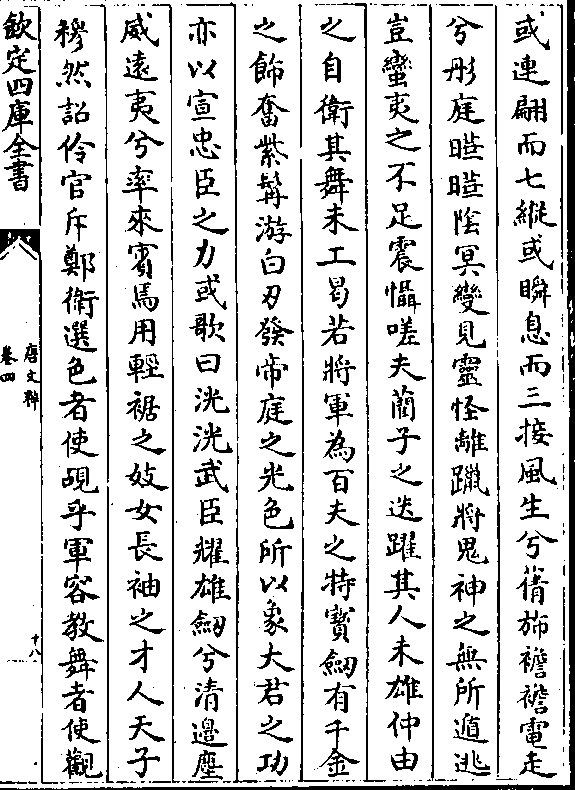 或連翩而七縱或瞬息而三接風生兮蒨斾襜襜電走
兮彤庭曀曀陰冥變見靈怪離躐將鬼神之無所遁逃
豈蠻夷之不足震懾嗟夫蘭子之迭躍其人未雄仲由
之自衛其舞未工曷若將軍為百夫之特寶劒有千金
之飾奮紫髯游白刃發帝庭之光色所以象大君之功
亦以宣忠臣之力或歌曰洸洸武臣耀雄劒兮清邊塵
威遠夷兮率來賓焉用輕裾之妓女長袖之才人天子
穆然詔伶官斥鄭衛選色者使覘乎軍容教舞者使觀
欽定四庫全書
唐文粹
卷四
十八